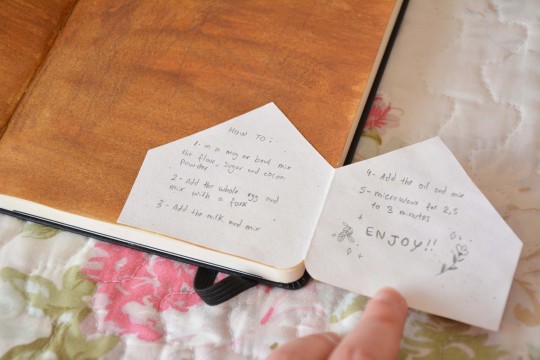 HOW TO:
1- in a mug or bowl mix
the flour, sugar and cocoa
powder
2- Add the whole egg and
mix with a fork
3- Add the milk and mix
4- Add the oil and mix
5- microwave for 2,5
to 3 minutes
ENJOY!!